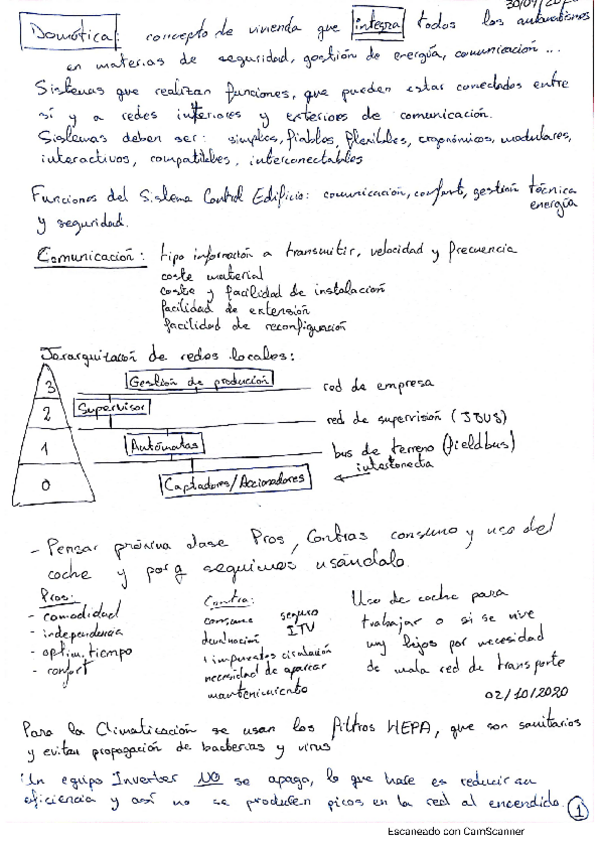 30/09/20
Domótica: concepto de vivienda que integra todos los automatismos
en materias de seguridad, gestión de energía, comunicación ...
Sistemas que realizan funciones, que pueden estar conectados entre
sí y a redes interiores y exteriores de comunicación.
Sistemas deben ser: simples, fiables, flexibles, ergonómicos, modulares,
interactivos, compatibles, interconectables
Funciones del Sistema Control Edificio: comunicación, confort, gestión técnica
energía
y seguridad.
Comunicación: tipo información a transmitir, velocidad y frecuencia
coste material
coste y facilidad de instalación
facilidad de extensión
facilidad de reconfiguración
Jerarquización de redes locales:
3 Gestión de producción red de empresa
2 Supervisor red de supervisión (JBUS)
1 Autómatas bus de terreno (fieldbus)
interconecta
0 Captadores/Accionadores
- Pensar próxima clase Pros, Contras consumo y uso del
coche y porq seguimos usándolo.
Pros:
- comodidad
- independencia
- optim. tiempo
- confort
Contra:
consumo seguro
devaluación ITV
impuestos circulación
necesidad de aparcar
mantenimiento
Uso de coche para
trabajar o si se vive
hijos por necesidad
de mala red de transporte
02/10/2020
Para la Climaticación se usan los filtros HEPA, que son sanitarios
y evitan propagación de bacterias y virus
Un equipo Inverter NO se apaga, lo que hace es reducir su
eficiencia y así no se producen picos en la red al encendido.
1
Escaneado con CamScanner